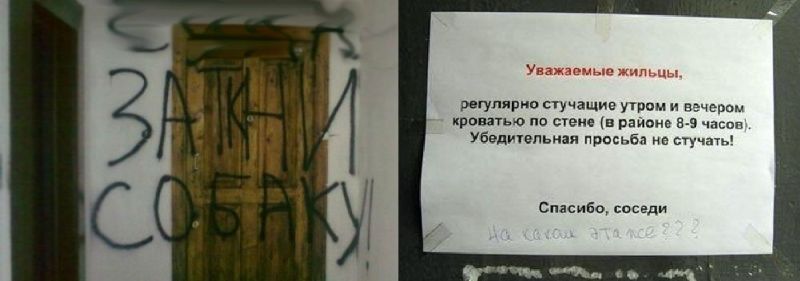 ЗАТКНИ
СОБАКУ!!
Уважаемые жильцы,
регулярно стучащие утром и вечером
кроватью по стене (в районе 8-9 часов).
Убедительная просьба не стучать!
Спасибо, соседи
На каком этаже???